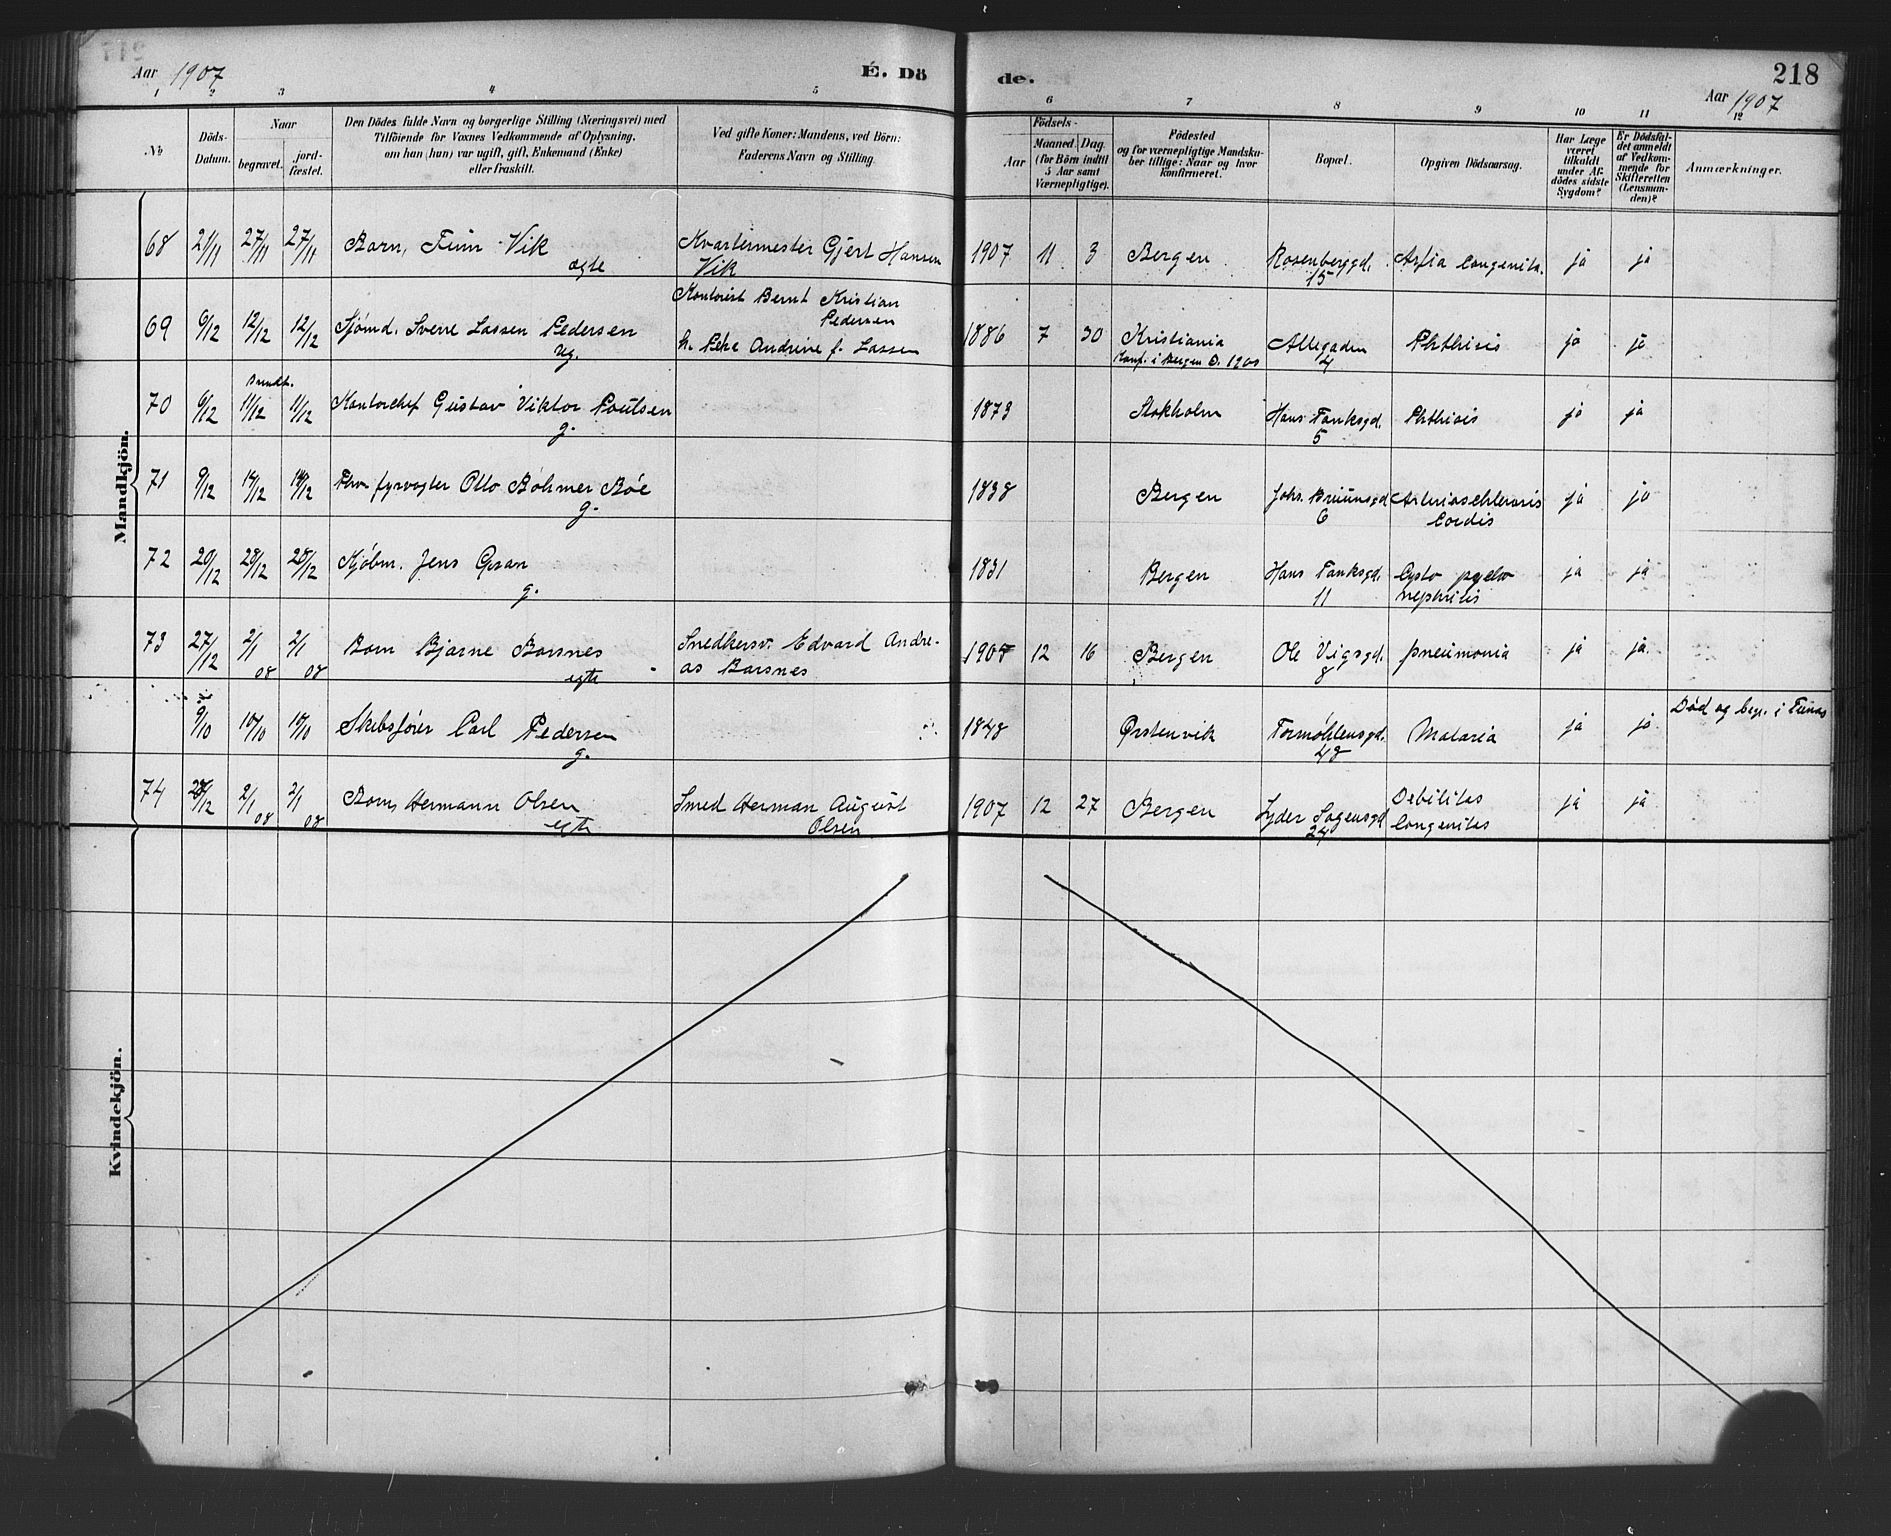 Aar 1907
É. Dö
de.
218
Aar 1907
1 2 3 4 5
6 7 8 9 10 11 12
No
Döds-
Datum.
Naar
begravet.
jord-
fæstet.
Den Dödes fulde Navn og borgerlige Stilling (Næringsvei) med
Tilföiende for Voxnes Vedkommende af Oplysning,
om han (hun) var ugift, gift, Enkemand (Enke)
eller fraskilt.
Ved gifte Koner: Mandens, ved Börn:
Faderens Navn og Stilling.
Födsels-
Aar
Maaned. Dag.
(for Börn indtil
5 Aar samt
Værnepligtige).
Födested
og for værnepligtige Mandska-
ber tillige: Naar og hvor
konfirmeret.
Bopæl.
Opgiven Dödsaarsag.
Har Læge
været
tilkaldt
under Af-
dödes sidste
Sygdom?
Er Dödsfal-
det anmeldt
af Vedkom-
mende for
Skifteretten
(Lensman-
den)?
Anmærkninger.
Mandkjön.
68 21/11 27/11 27/11 Barn, Finn Vik
ægte
Kvartermester Gjert Hansen
Vik
1907 11 3 Bergen Rosenberggd.
15
Asfia Congenita. ja ja
69 6/12 12/12 12/12 Sjömd. Sverre Lassen Pedersen
ug.
Kontorist Bernt Kristian
Pedersen
h. Andrine f. Lassen
1886 7 30 Kristiania
Konf. i Bergen 1900
Allegaden
4
Phthisis ja ja
70 6/12 11/12 11/12 Kontorchef Gustav Viktor Poulsen
g.
1873 Stokholm Hans Tanksgd.
5
Phthisis ja ja
71 9/12 14/12 14/12 fyrvogter Otto Böhmer Böe
g.
1838 Bergen Johs. Bruunsgd
6
Cordis ja ja
72 20/12 28/12 28/12 Kjöbm. Jens Gran
g.
1831 Bergen Hans Tanksgd.
11
Cysto pyelo
nephritis ja ja
73 27/12 2/1 08 2/1 08 Barn Bjarne Barsnes
egte
Snedkersv. Edvard Andre-
as Barsnes
1907 12 16 Bergen Ole Vigsgd.
8
pneumonia ja ja
9/10 10/10 10/10 Skibsförer Carl Pedersen
g.
1848 Ørstenvik Formöhlensgd.
48
Malaria ja ja
Død og begr. i
74 28/12 2/1 08 2/1 08 Barn, Hermann Olsen
egte
Smed Herman August
Olsen
1907 12 27 Bergen Lyder Sagensgd
24
Debilitas
Congenitas ja ja
Kvindekjön.